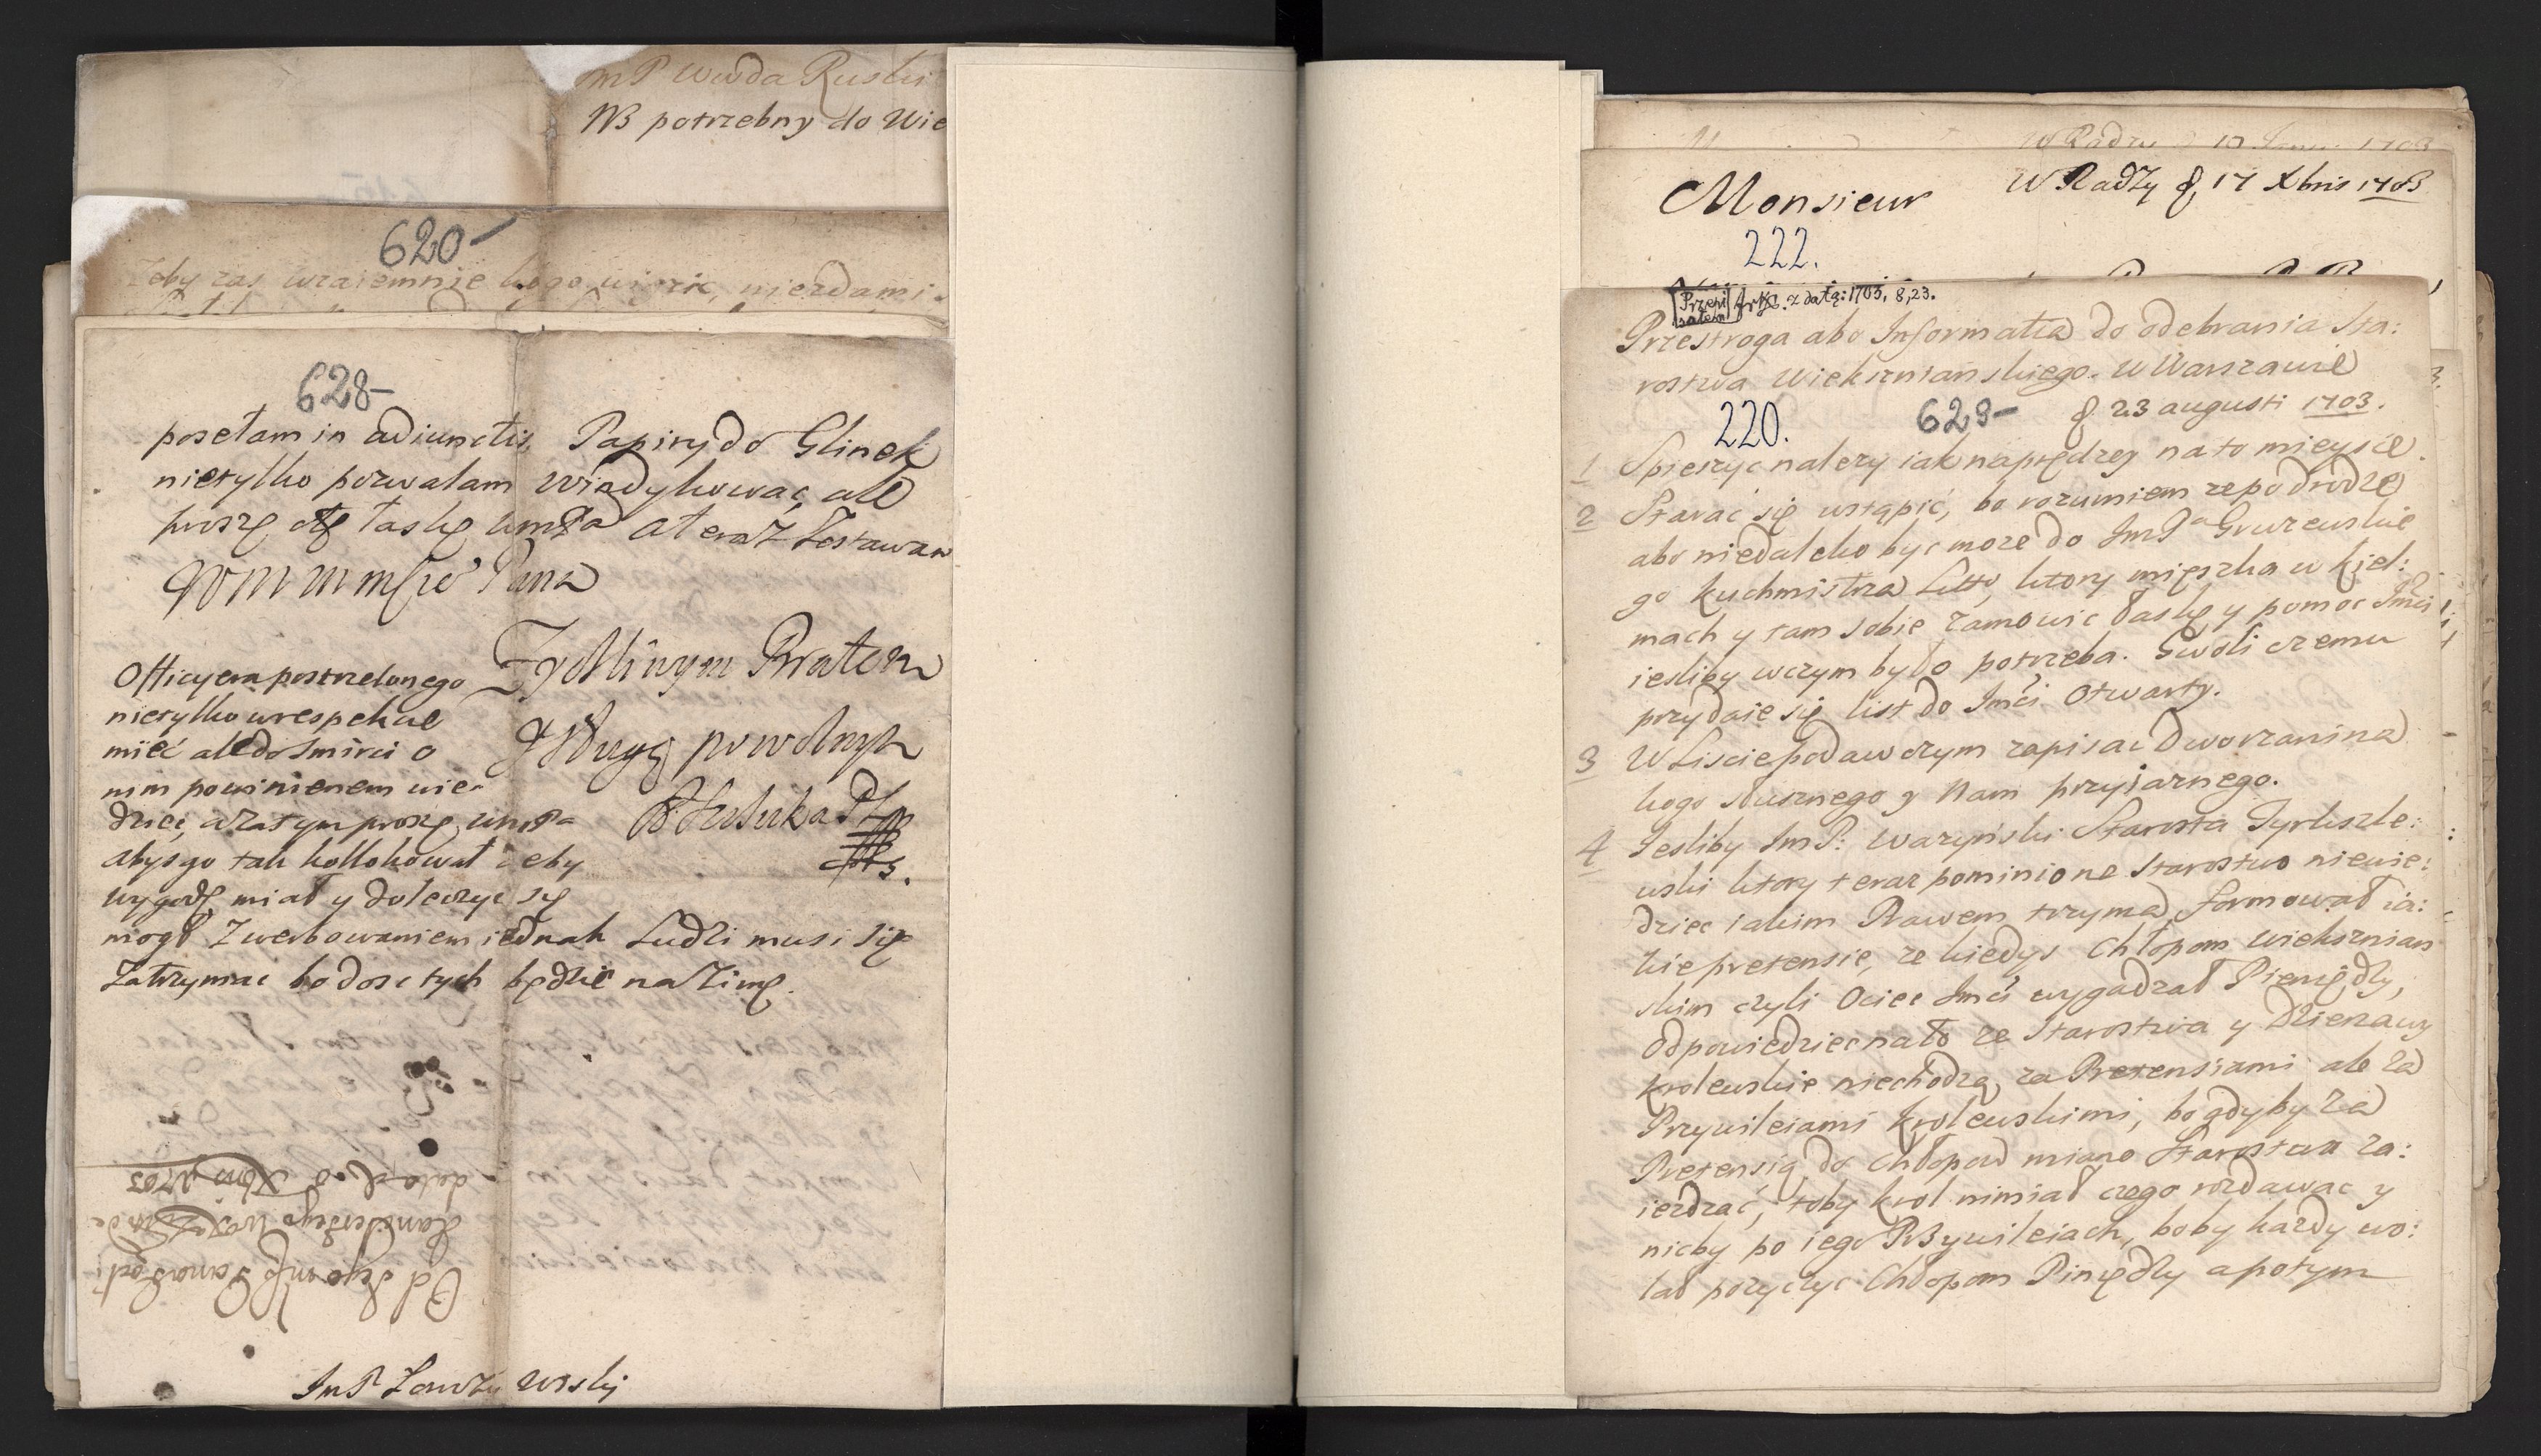 mP Wwda Ruski
NB potrzebny do Wie
620-
Zeby zas wzaiemnie kogo
628-
posełam in adiunctis, Papiry do Glinek
nietylko pozwalam windykować, ale
proszę o tę łaskę wmPa a teraz zostawam
WM M mśćio Pana
Życzliwym Bratem
y Sługą powolnym
Officyera postrzelonego
nietylko w respekcie
mieć ale do śmirci o
nim powinienem wie-
dzieć, a zatym proszę wmPa
abyś go tak kollokował żeby
wygodę miał y doleczyć się
mogł Z werbowaniem iednak Ludzi musi się
zatrzymac bo dosc tych będzie na Zimę.
Od Jego mśc Pana
de data d Xbris 1703
Im P Zawzy Wski
W Radzy
Monsieur W Radzy d, 17 Xbris 1703
222.
Przepisałem Ark. z datą: 1703, 8, 23.
Przestroga abo Informatia do odebrania Sta:
rostwa Wiekszniańskiego. W Warszawie
220. 629- d 23 augusti 1703.
1 Spieszyc nalezy iak naprędzey na to mieysce.
2 Starać się wstąpić, bo rozumiem ze po drodze
abo niedaleko byc moze do Im Pa Gruzewskie
go Kuchmistrza Litto, ktory mięszka w Kiel:
mach y tam sobie zamowic łaskę y pomoc Imci
iesliby w czym było potrzeba. Gwoli czemu
przydaie się list do Imci Otwarty.
3 W Liscie podawczym zapisac Dworzanina
kogo słusznego y Nam przyiaznego.
4 Jesliby Im P: Wazyński Starosta Tyrkszle:
wski ktory teraz pominione Starostwo niewie:
dziec iakim Prawem trzyma, formował ia:
kie pretensie, ze kiedys Chłopom Wieksznian
skim czyli Ociec Imci wygadzał Pieniędzy,
odpowiedziec na to ze Starostwa y Dzierzawy
Krolewskie niechodzą, za Pretensiami ale za
Przywileiami Krolewskimi, bo gdyby za
Pretensią do Chłopow miano Starostwa za:
iezdzać, toby Krol nimiał czego rozdawac y
nicby po iego Przywileiach, boby kazdy wo:
lał pozyczyc Chłopom Pinędzy a potym